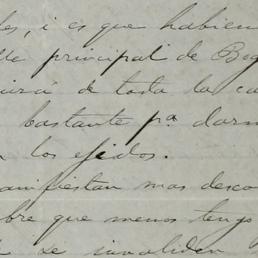 es, i es que habien
lle principal de Bog
uirá de toda la ca
bastante pa. darm
los ejidos.
anifiestan mas desco
bre que menos tengo
se invaliden